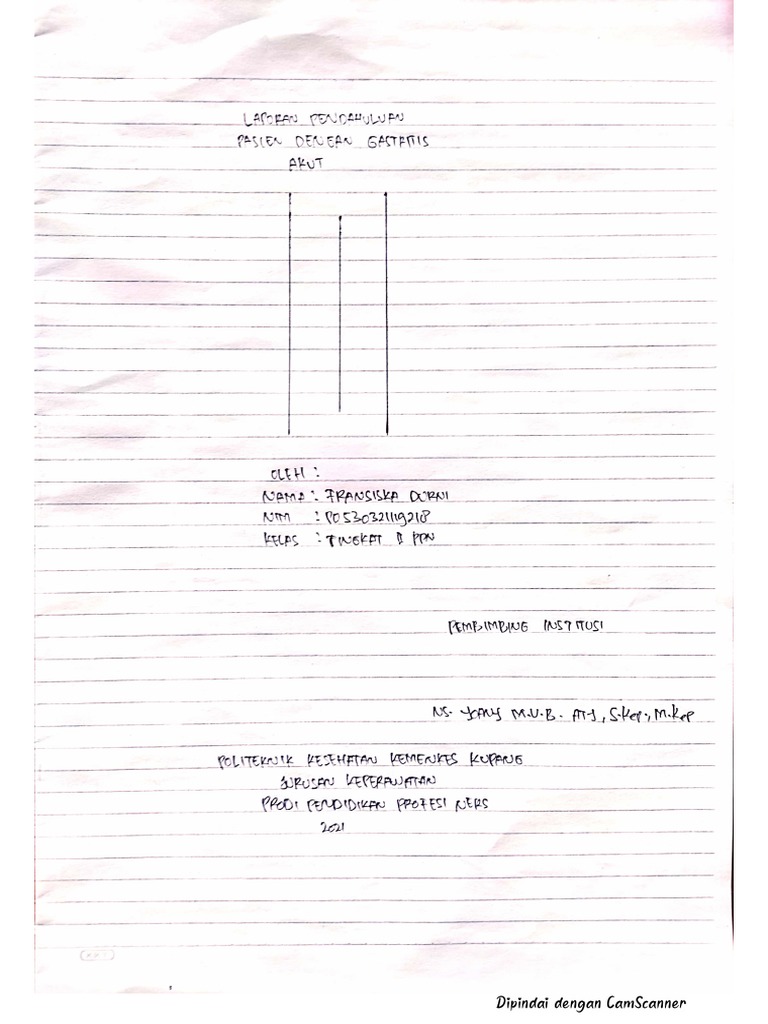 LAPORAN PENDAHULUAN
PASIEN DENGAN GASTRITIS
AKUT
OLEH :
NAMA : FRANSISKA DURNI
NIM : PO530321119218
KELAS : TINGKAT II PPN
PEMBIMBING INSTITUSI
NS. YOANY M.V.B. ATY, S.Kep., M.Kep
POLITEKNIK KESEHATAN KEMENKES KUPANG
JURUSAN KEPERAWATAN
PRODI PENDIDIKAN PROFESI NERS
2021
Dipindai dengan CamScanner